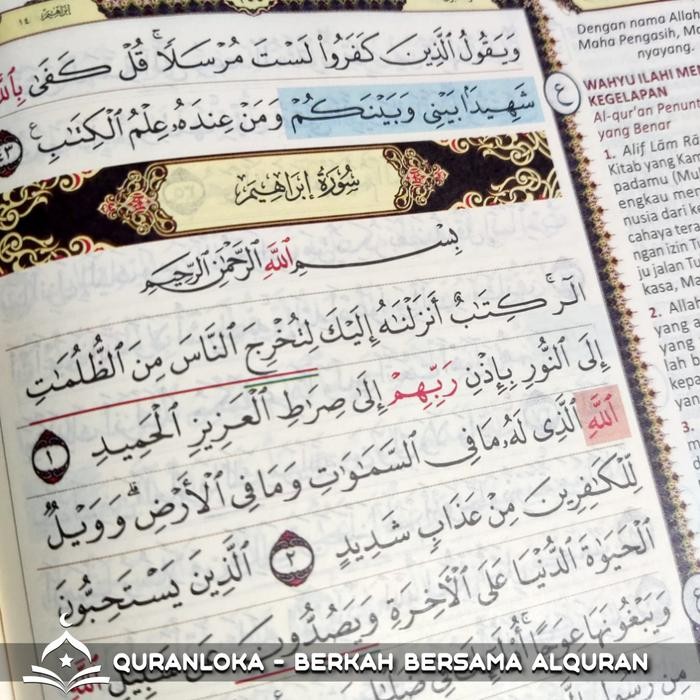 إبراهيم ١٤
وَيَقُولُ الَّذِينَ كَفَرُوا لَسْتَ مُرْسَلًا ۚ قُلْ كَفَىٰ
شَهِيدًا بَيْنِي وَبَيْنَكُمْ وَمَنْ عِنْدَهُ عِلْمُ الْكِتَابِ ٤٣
سُورَةُ إِبْرَاهِيمَ
بِسْمِ اللَّهِ الرَّحْمَٰنِ الرَّحِيمِ
الٓرٰ ۚ كِتَابٌ أَنْزَلْنَاهُ إِلَيْكَ لِتُخْرِجَ النَّاسَ مِنَ الظُّلُمَاتِ
إِلَى النُّورِ بِإِذْنِ رَبِّهِمْ إِلَىٰ صِرَاطِ الْعَزِيزِ الْحَمِيدِ ١
اللَّهِ الَّذِي لَهُ مَا فِي السَّمَاوَاتِ وَمَا فِي الْأَرْضِ ۗ وَوَيْلٌ
لِلْكَافِرِينَ مِنْ عَذَابٍ شَدِيدٍ ٢ الَّذِينَ يَسْتَحِبُّونَ
الْحَيَاةَ الدُّنْيَا عَلَى الْآخِرَةِ وَيَصُدُّونَ عَنْ سَبِيلِ اللَّهِ
وَيَبْغُونَهَا عِوَجًا ۚ
Dengan nama Allah
Maha Pengasih, Ma
nyayang.
ع
WAHYU ILAHI MEN
KEGELAPAN
Al-qur'an Penun
yang Benar
1. Alif Lām Rā
Kitab yang Ka
padamu (Mu
engkau me
nusia dari ke
cahaya tera
ngan izin Tu
ju jalan Tu
kasa, Ma
2. Allah
yang a
yang
lah b
kepa
yan
3.
QURANLOKA - BERKAH BERSAMA ALQURAN